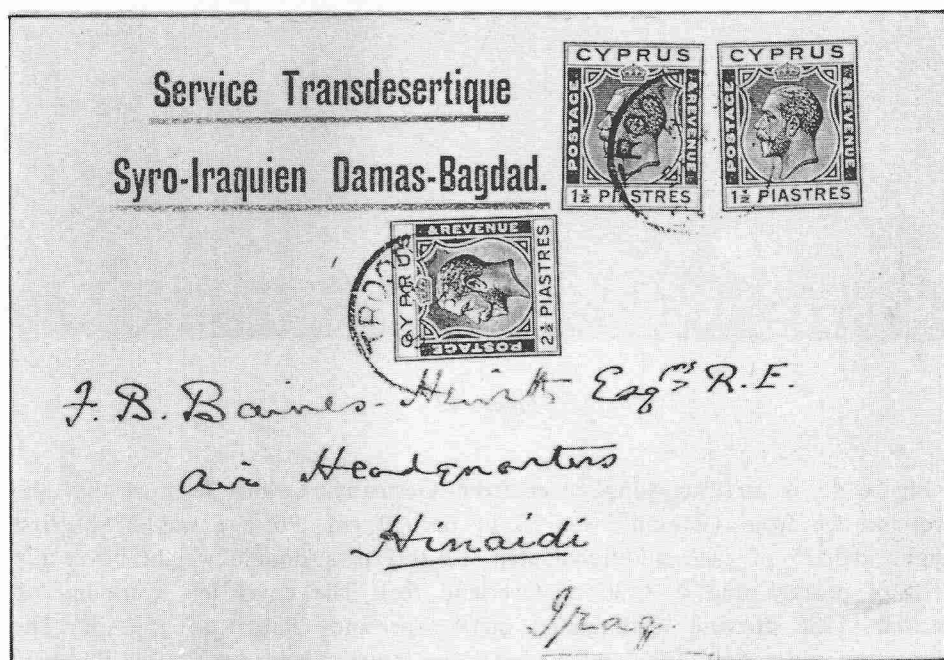 Service Transdesertique
Syro-Iraquien Damas-Bagdad.
CYPRUS
POSTAGE & REVENUE
1½ PIASTRES
CYPRUS
POSTAGE & REVENUE
1½ PIASTRES
CYPRUS
POSTAGE & REVENUE
2½ PIASTRES
F. B. Baines-Hewitt Esqre R.E.
Air Headquarters
Hinaidi
Iraq.